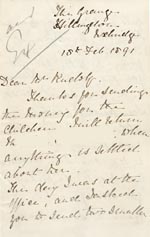 The Grange
Hillingdon
Uxbridge
18th Feb 1891
Dear Mr Rudolf,
Thanks for sending
the money for the
children I will return
when
anything is settled
about
The day I was at the
office, and I asked
you to send Mrs